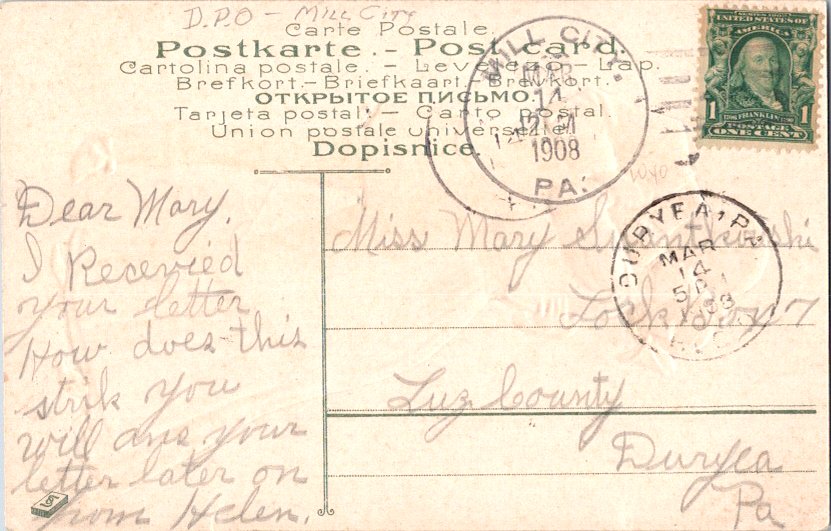 D.P.O - MILL CITY
Carte Postale.
Postkarte. - Post card.
Cartolina postale. - Levelezo-Lap.
Brefkort. - Briefkaart. Brevkort.
ОТКРЫТОЕ ПИСЬМО.
Tarjeta postal. - Carto postal.
Union postale universelle.
Dopisnice.
MILL CITY.
MAR
14
12 M
1908
PA.
UNITED STATES OF
AMERICA
1 1
FRANKLIN
POSTAGE
ONE CENT
Wyo
DURYEA, PA.
MAR
14
5 PM
Dear Mary.
I Recevied
your letter
How does this
strik you
will ans your
letter later on
from Helen.
Miss Mary
Lock Box 7
Luz County
Duryea
Pa